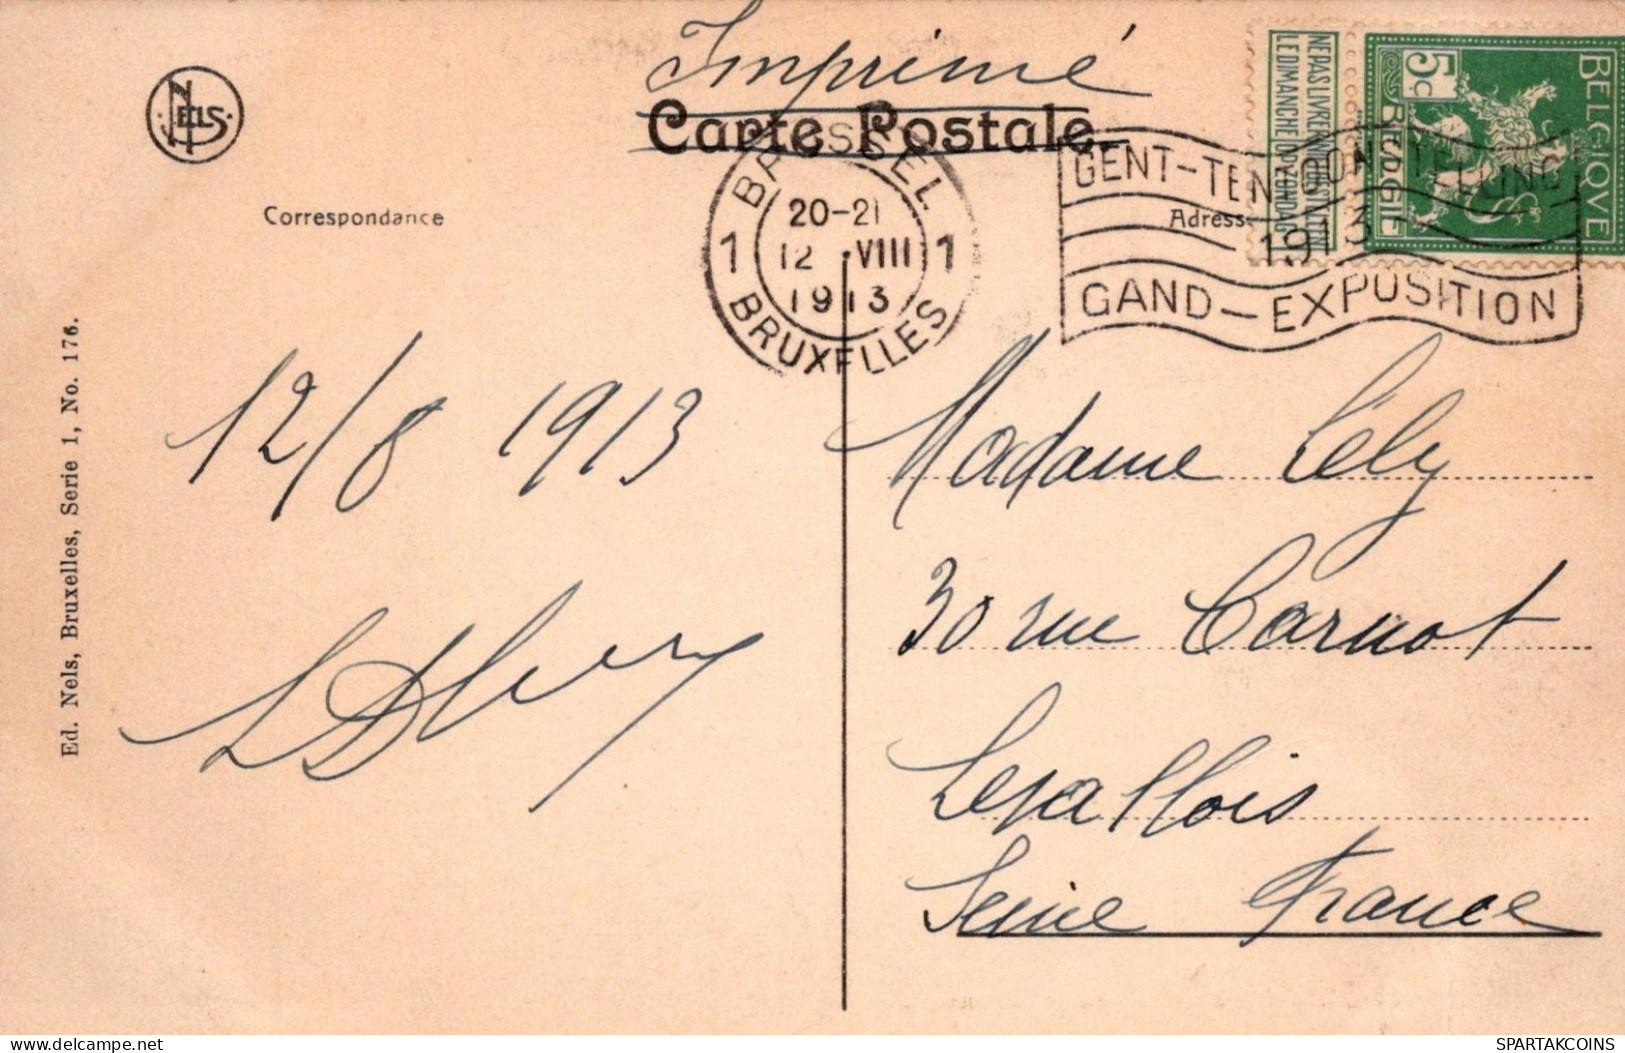 Imprimé
Carte Postale
NELS
Correspondance
Adresse
NE PAS LIVRER LE DIMANCHE
BELGIQVE
BELGIE
5c
BRUSSEL
20-21
1 12 VIII 1
1913
BRUXELLES
GENT-TENTOONSTELLING
1913
GAND-EXPOSITION
12/8 1913
Madame Lély
30 rue Carnot
Levallois
Seine France
Ed. Nels, Bruxelles, Serie 1, No. 176.
SPARTAKCOINS
https://spartakcoins.delcampe.net